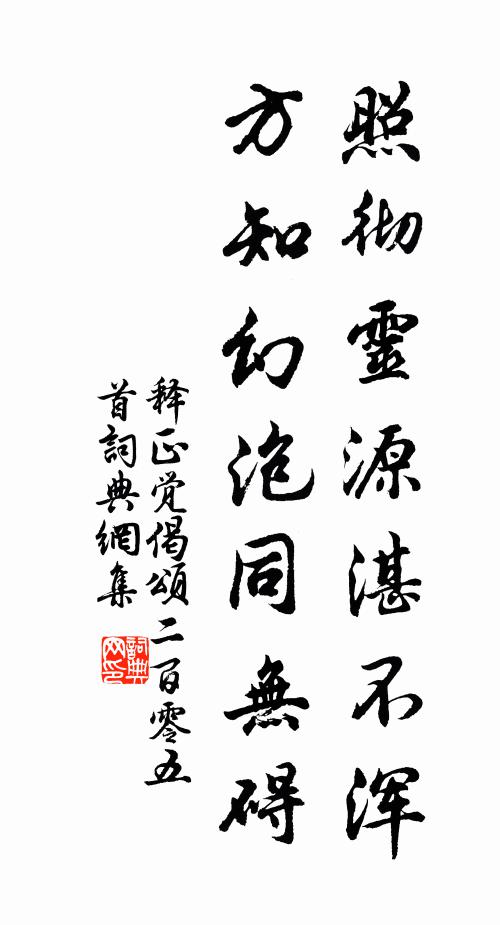 照彻靈源湛不浑
方知幻泡同無碍
释正覚偈頌二百零五
首詞典網集
詞典网印